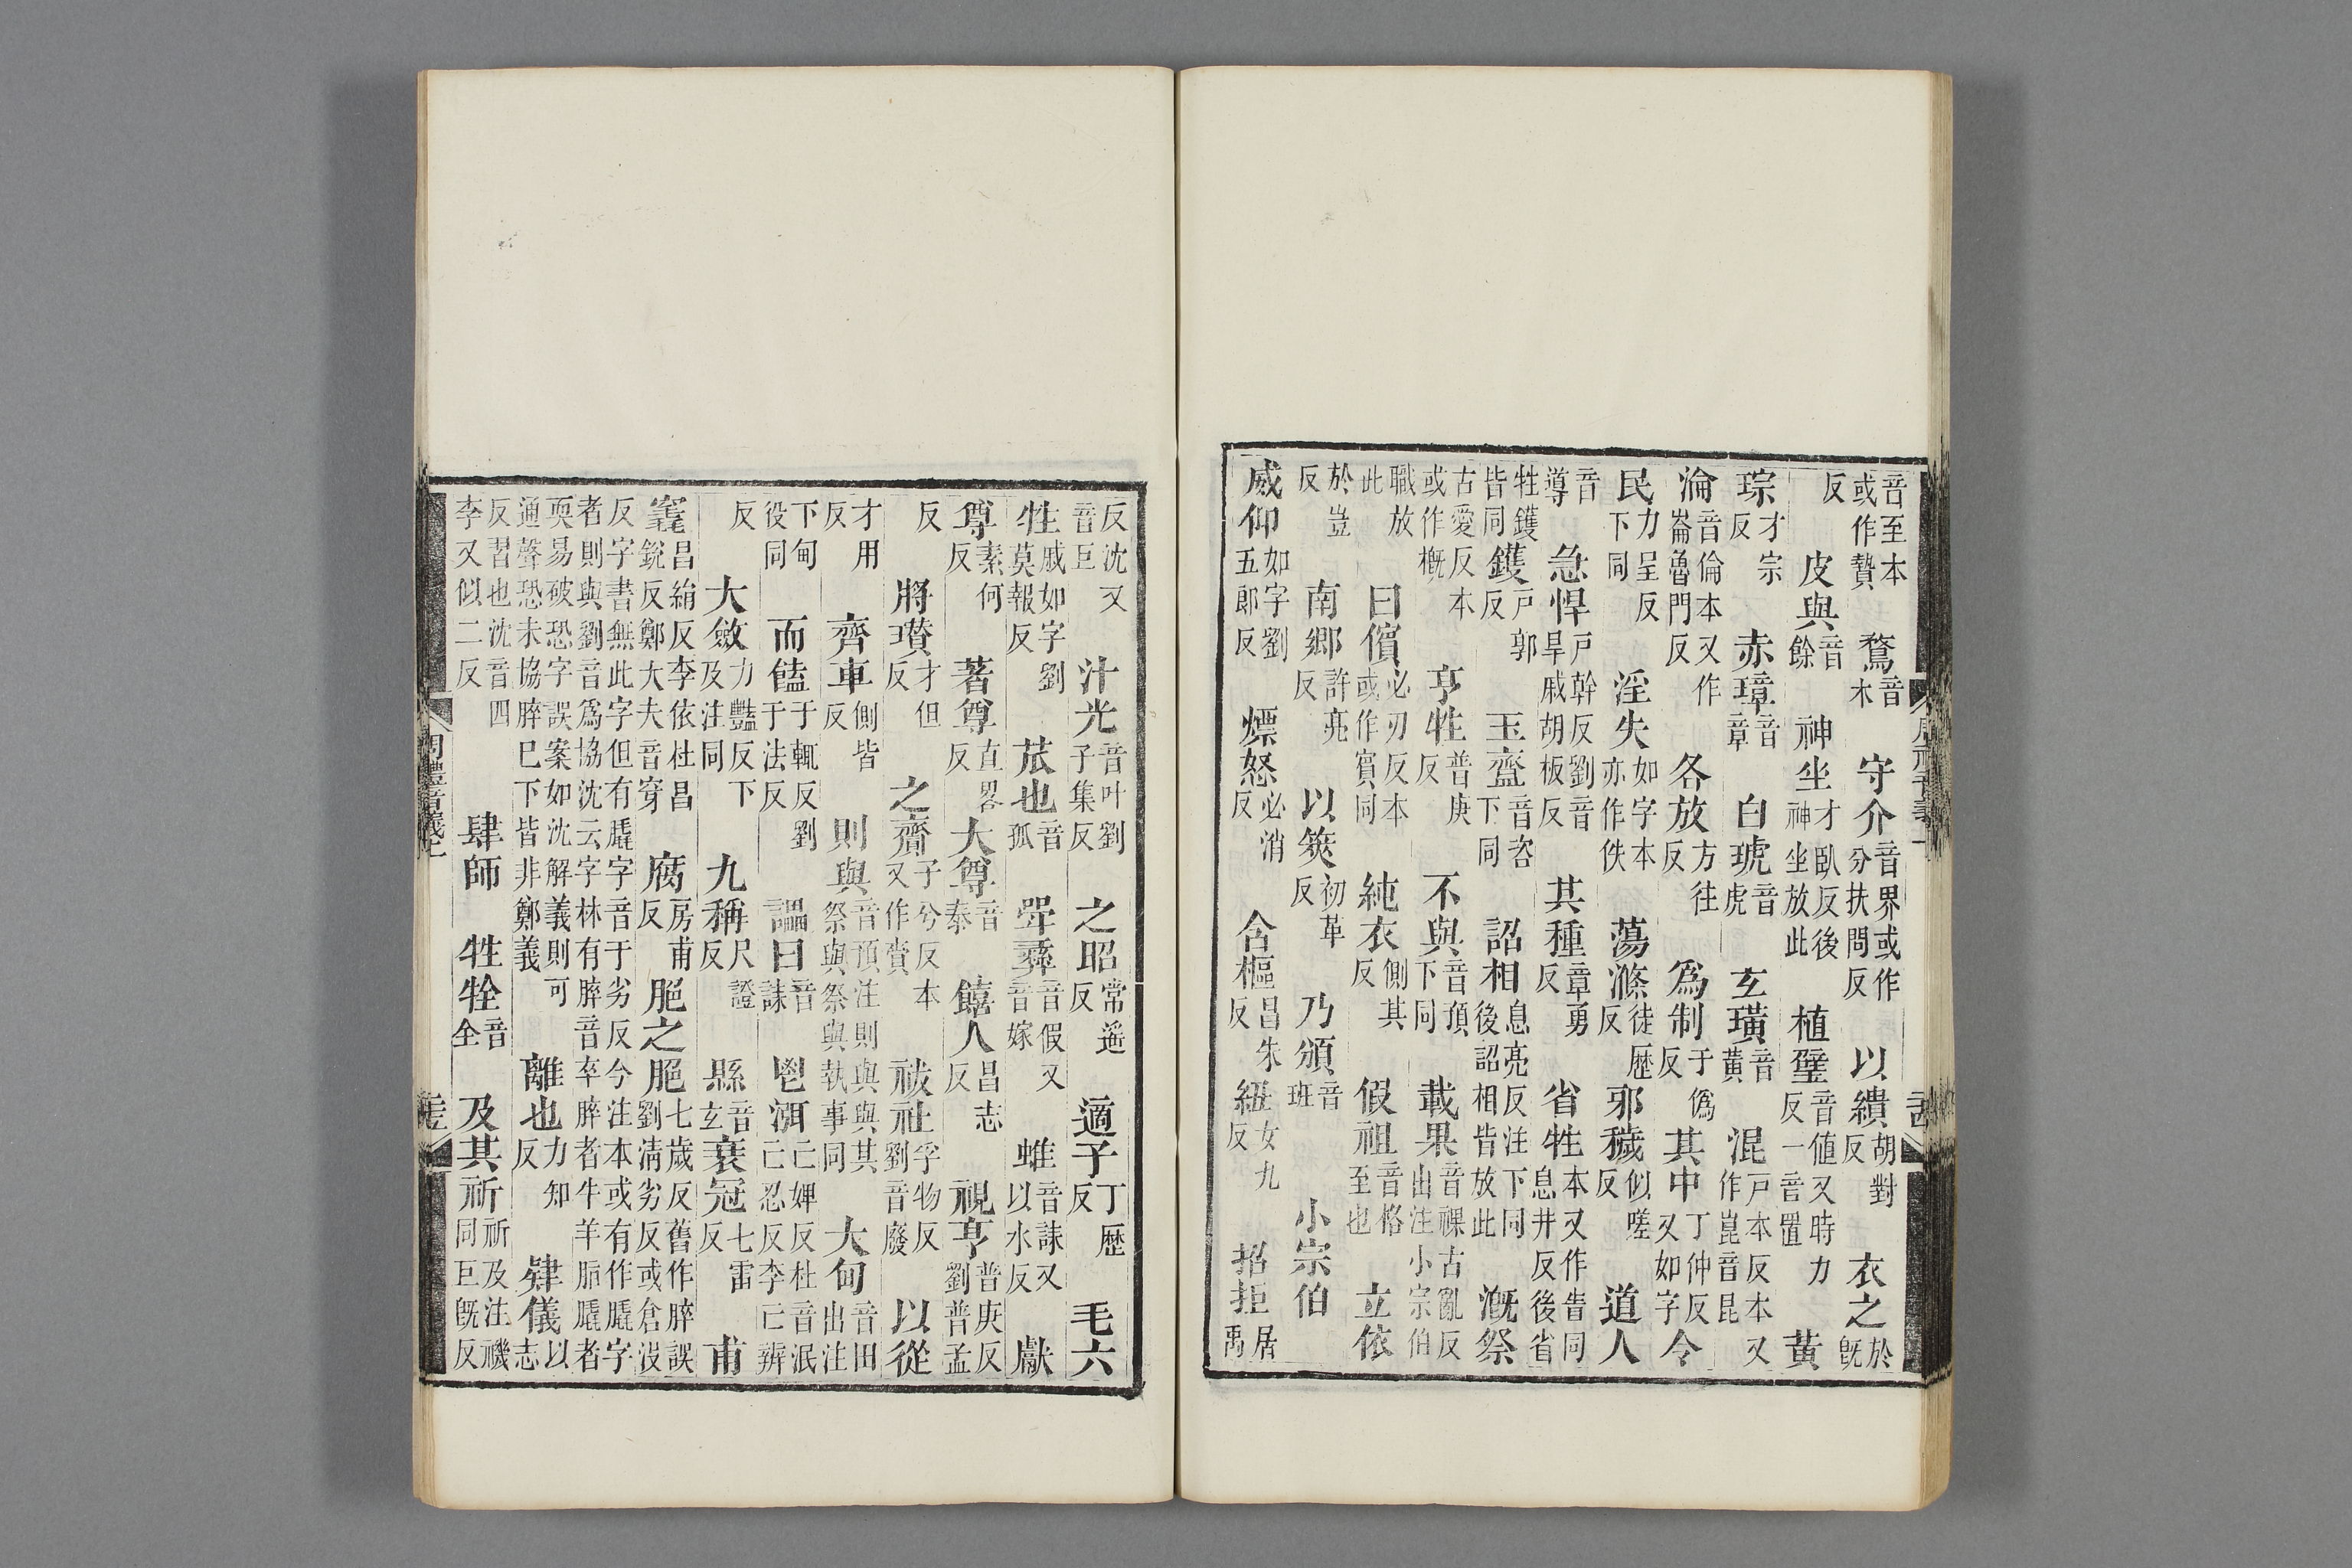 音至本或作贄 鶩音木 守介音界或作分扶問反 以繢胡對反 衣之於旣
反 皮與音餘 神坐才臥反後神坐放此 植璧音値又時力反一音置 黃
琮才宗反 赤璋音章 白琥音虎 玄璜音黃 混戸本反本又作崑音昆
淪音倫本又作崙魯門反 各放方往反 爲制于僞反 其中丁仲反又如字 令
民力呈反下同 淫失如字本亦作佚 蕩滌徒歷反 邪穢似嗟反 道人
音導 急悍戸幹反劉音旱戚胡板反 其種章勇反 省牲本又作眚同息井反後省
牲鑊皆同 鑊戸郭反 玉齍音咨下同 詔相息亮反注下同後詔相皆放此 漑祭
古愛反本或作槪 亨牲普庚反 不與音預下同 載果音祼古亂反出注小宗伯
職放此 曰儐必刃反本或作賓同 純衣側其反 假祖音格至也 立依
於豈反 南鄉許亮反 以筴初革反 乃頒音班 小宗伯
威仰如字劉五郞反 熛怒必消反 含樞昌朱反 紐女九反 招拒居禹
反沈又音巨 汁光音叶劉子集反 之昭常遙反 適子丁歷反 毛六
牲戚如字劉莫報反 苽也音孤 斝彝音假又音嫁 蜼音誄又以水反 獻
尊素何反 著尊直畧反 大尊音泰 饎人昌志反 視亨普庚反劉普孟
反 將瓚才但反 之齎子兮反本又作賫 祓社孚物反劉音廢 以從
才用反 齊車側皆反 則與音預注則與與其祭與祭與執事同 大甸音田出注
下甸役同 而饁于輒反劉于法反 讄曰音誄 鬯渳亡婢反杜音泯亡忍反李亡辨
反 大斂力豔反下及注同 九稱尺證反 縣音玄 衰冠七雷反 甫
竁昌絹反李依杜昌銳反鄭大夫音穿 腐房甫反 脃之脃七歲反舊作脺誤劉淸劣反或倉沒
反字書無此字但有膬字音于劣反今注本或有作膬字者則與劉音爲協沈云字林有脺音卒脺者牛羊脂膬者
耎易破恐字誤案如沈解義則可通聲恐未協脺巳下皆非鄭義 離也力知反 肄儀以志
反習也沈音四李又似二反 肆師 牲牷音全 及其祈祈及注禨同巨旣反
周禮音義上